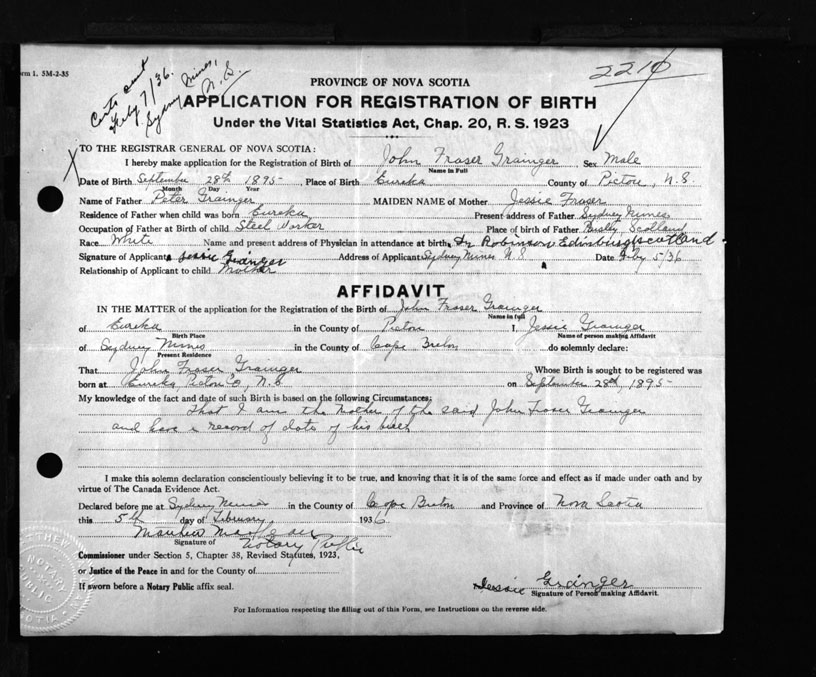 Form 1. 5M-2-35
Certs sent
Feby 7/36.
Sydney Mines,
N.S.
2210
PROVINCE OF NOVA SCOTIA
APPLICATION FOR REGISTRATION OF BIRTH
Under the Vital Statistics Act, Chap. 20, R. S. 1923
TO THE REGISTRAR GENERAL OF NOVA SCOTIA:
I hereby make application for the Registration of Birth of John Fraser Grainger Sex Male
Name in Full
Date of Birth September 28th 1895 Place of Birth Eureka County of Pictou, N.S.
Month Day Year
Name of Father Peter Grainger MAIDEN NAME of Mother Jessie Fraser
Residence of Father when child was born Eureka Present address of Father Sydney Mines
Occupation of Father at Birth of child Steel Worker Place of birth of Father Scotland
Race White Name and present address of Physician in attendance at birth Dr Robinson Edinburgh Scotland
Signature of Applicant Jessie Grainger Address of Applicant Sydney Mines N S Date Feby 5/36
Relationship of Applicant to child Mother
AFFIDAVIT
IN THE MATTER of the application for the Registration of the Birth of John Fraser Grainger
Name in full
of Eureka in the County of Pictou I, Jessie Grainger
Birth Place Name of person making Affidavit
of Sydney Mines in the County of Cape Breton do solemnly declare:
Present Residence
That John Fraser Grainger Whose Birth is sought to be registered was
born at Eureka Pictou Co, N.S. on September 28th, 1895
My knowledge of the fact and date of such Birth is based on the following Circumstances:
That I am the Mother of the said John Fraser Grainger
and have a record of date of his birth
I make this solemn declaration conscientiously believing it to be true, and knowing that it is of the same force and effect as if made under oath and by
virtue of The Canada Evidence Act.
Declared before me at Sydney Mines in the County of Cape Breton and Province of Nova Scotia
this 5th day of February 1936
Notary Public
Signature of
Commissioner under Section 5, Chapter 38, Revised Statutes, 1923,
or Justice of the Peace in and for the County of
If sworn before a Notary Public affix seal.
Jessie Grainger
Signature of Person making Affidavit.
For Information respecting the filling out of this Form, see Instructions on the reverse side.
NOTARY
PUBLIC